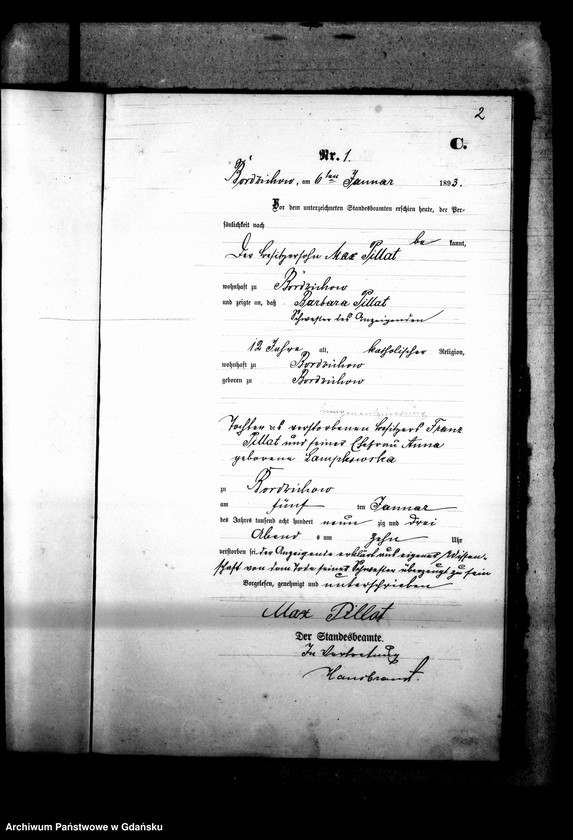 2
C.
Nr. 1.
Bordzichow, am 6ten Januar 1893.
Vor dem unterzeichneten Standesbeamten erschien heute, der Per-
sönlichkeit nach
be kannt,
Der Besitzersohn Max Pillat
wohnhaft zu Bordzichow
und zeigte an, daß Barbara Pillat
Schwester des Anzeigenden
12 Jahre alt, katholischer Religion,
wohnhaft zu Bordzichow
geboren zu Bordzichow
Lungenentzündung
Tochter des verstorbenen Besitzers Franz
Pillat und seiner Ehefrau Anna
geborene
zu Bordzichow
am fünf ten Januar
des Jahres tausend acht hundert neun zig und drei
Abend s um zehn Uhr
verstorben sei. der Anzeigende erklärt aus eigener Wissen-
schaft von dem Tode seiner Schwester überzeugt zu sein
Vorgelesen, genehmigt und unterschrieben
Max Pillat
Der Standesbeamte.
In Vertretung
Archiwum Państwowe w Gdańsku